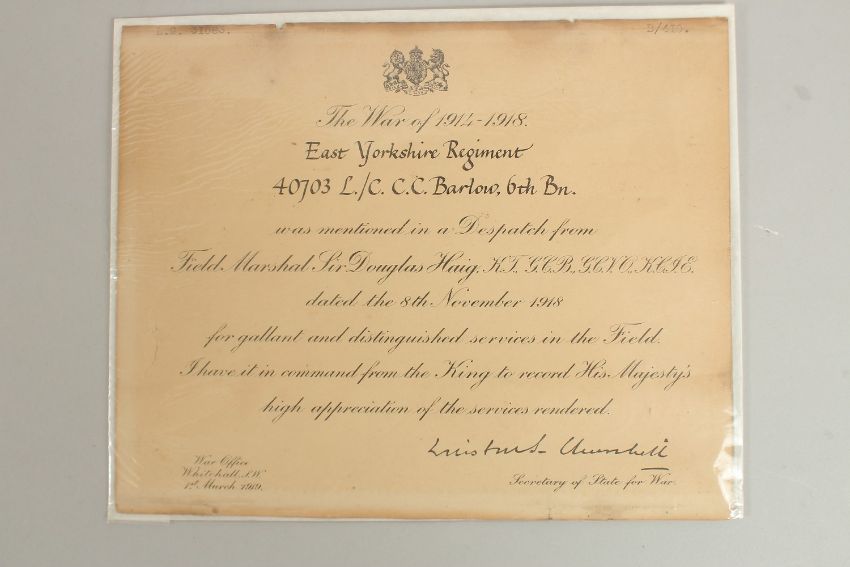 The War of 1914-1918.
East Yorkshire Regiment
40703 L./C. C.C. Barlow, 6th Bn.
was mentioned in a Despatch from
Field Marshal Sir Douglas Haig, K.T. G.C.B. G.C.V.O. K.C.I.E.
dated the 8th November 1918
for gallant and distinguished services in the Field.
I have it in command from the King to record His Majesty's
high appreciation of the services rendered.
Winston S. Churchill
War Office
Whitehall, S.W.
1st March 1919.
Secretary of State for War.